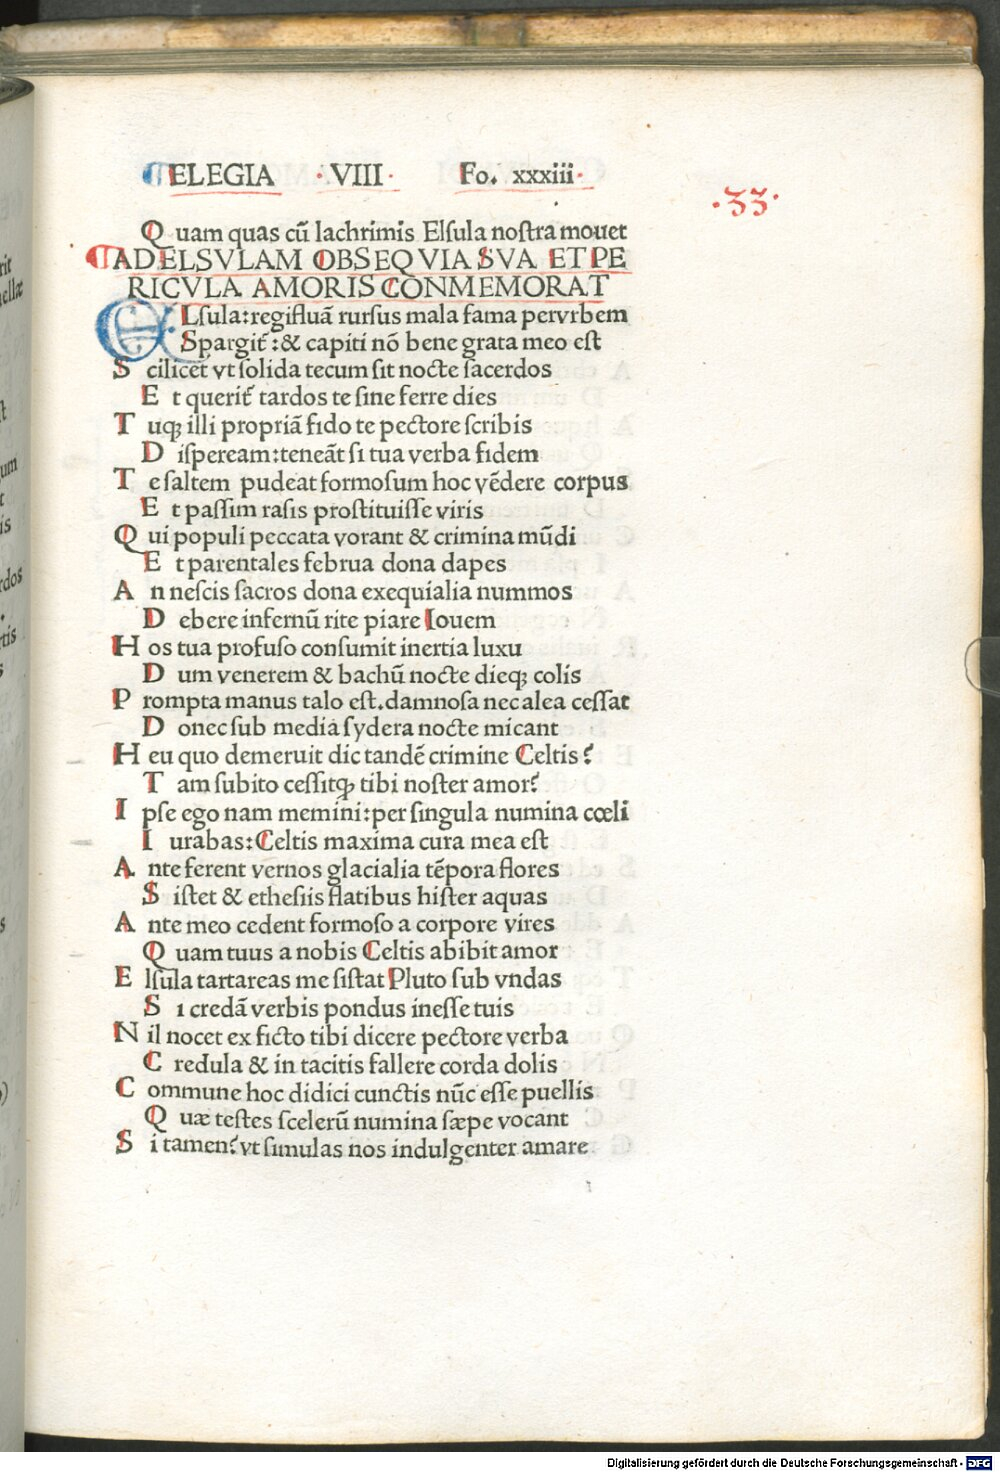 ELEGIA ·VIII· Fo. xxxiii·
·33·
Quam quas cū lachrimis Elſula noſtra mouet
AD ELSVLAM OBSEQVIA SVA ET PE
RICVLA AMORIS CONMEMORAT
ELſula:regiſluā rurſus mala fama pervrbem
Spargit̃:& capiti nō bene grata meo eſt
Scilicet vt ſolida tecum ſit nocte ſacerdos
Et querit̃ tardos te ſine ferre dies
Tuqꝫ illi propriā fido te pectore ſcribis
Diſpeream:teneāt ſi tua verba fidem
Te ſaltem pudeat formoſum hoc vēdere corpus
Et paſſim raſis proſtituiſſe viris
Qui populi peccata vorant & crimina mūdi
Et parentales februa dona dapes
An neſcis ſacros dona exequialia nummos
Debere infernū rite piare Iouem
Hos tua profuſo conſumit inertia luxu
Dum venerem & bachū nocte dieqꝫ colis
Prompta manus talo eſt.damnoſa nec alea ceſſat
Donec ſub media ſydera nocte micant
Heu quo demeruit dic tandē crimine Celtis?
Tam ſubito ceſſitqꝫ tibi noſter amor?
Ipſe ego nam memini:per ſingula numina cœli
Iurabas:Celtis maxima cura mea eſt
Ante ferent vernos glacialia tēpora flores
Siſtet & etheſiis flatibus hiſter aquas
Ante meo cedent formoſo a corpore vires
Quam tuus a nobis Celtis abibit amor
Elſula tartareas me ſiſtat Pluto ſub vndas
Si credā verbis pondus ineſſe tuis
Nil nocet ex ficto tibi dicere pectore verba
Credula & in tacitis fallere corda dolis
Commune hoc didici cunctis nūc eſſe puellis
Quæ teſtes ſcelerū numina ſæpe vocant
Si tamen?vt ſimulas nos indulgenter amare
Digitalisierung gefördert durch die Deutsche Forschungsgemeinschaft - DFG